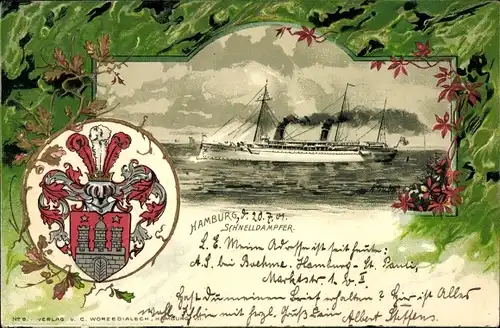 HAMBURG, d. 20.7.01.
SCHNELLDAMPFER.
L. E. Meine Adresse ist seit heute:
A. S. bei Boehme. Hamburg - St. Pauli,
Marktstr. 1 b. II
Hast du meinen Brief erhalten? Hier ist Alles
mit hrzl. Gruß Dein Albert Steffens
No 8. - VERLAG v. C. WORZEDIALECH, HAMBURG VI.